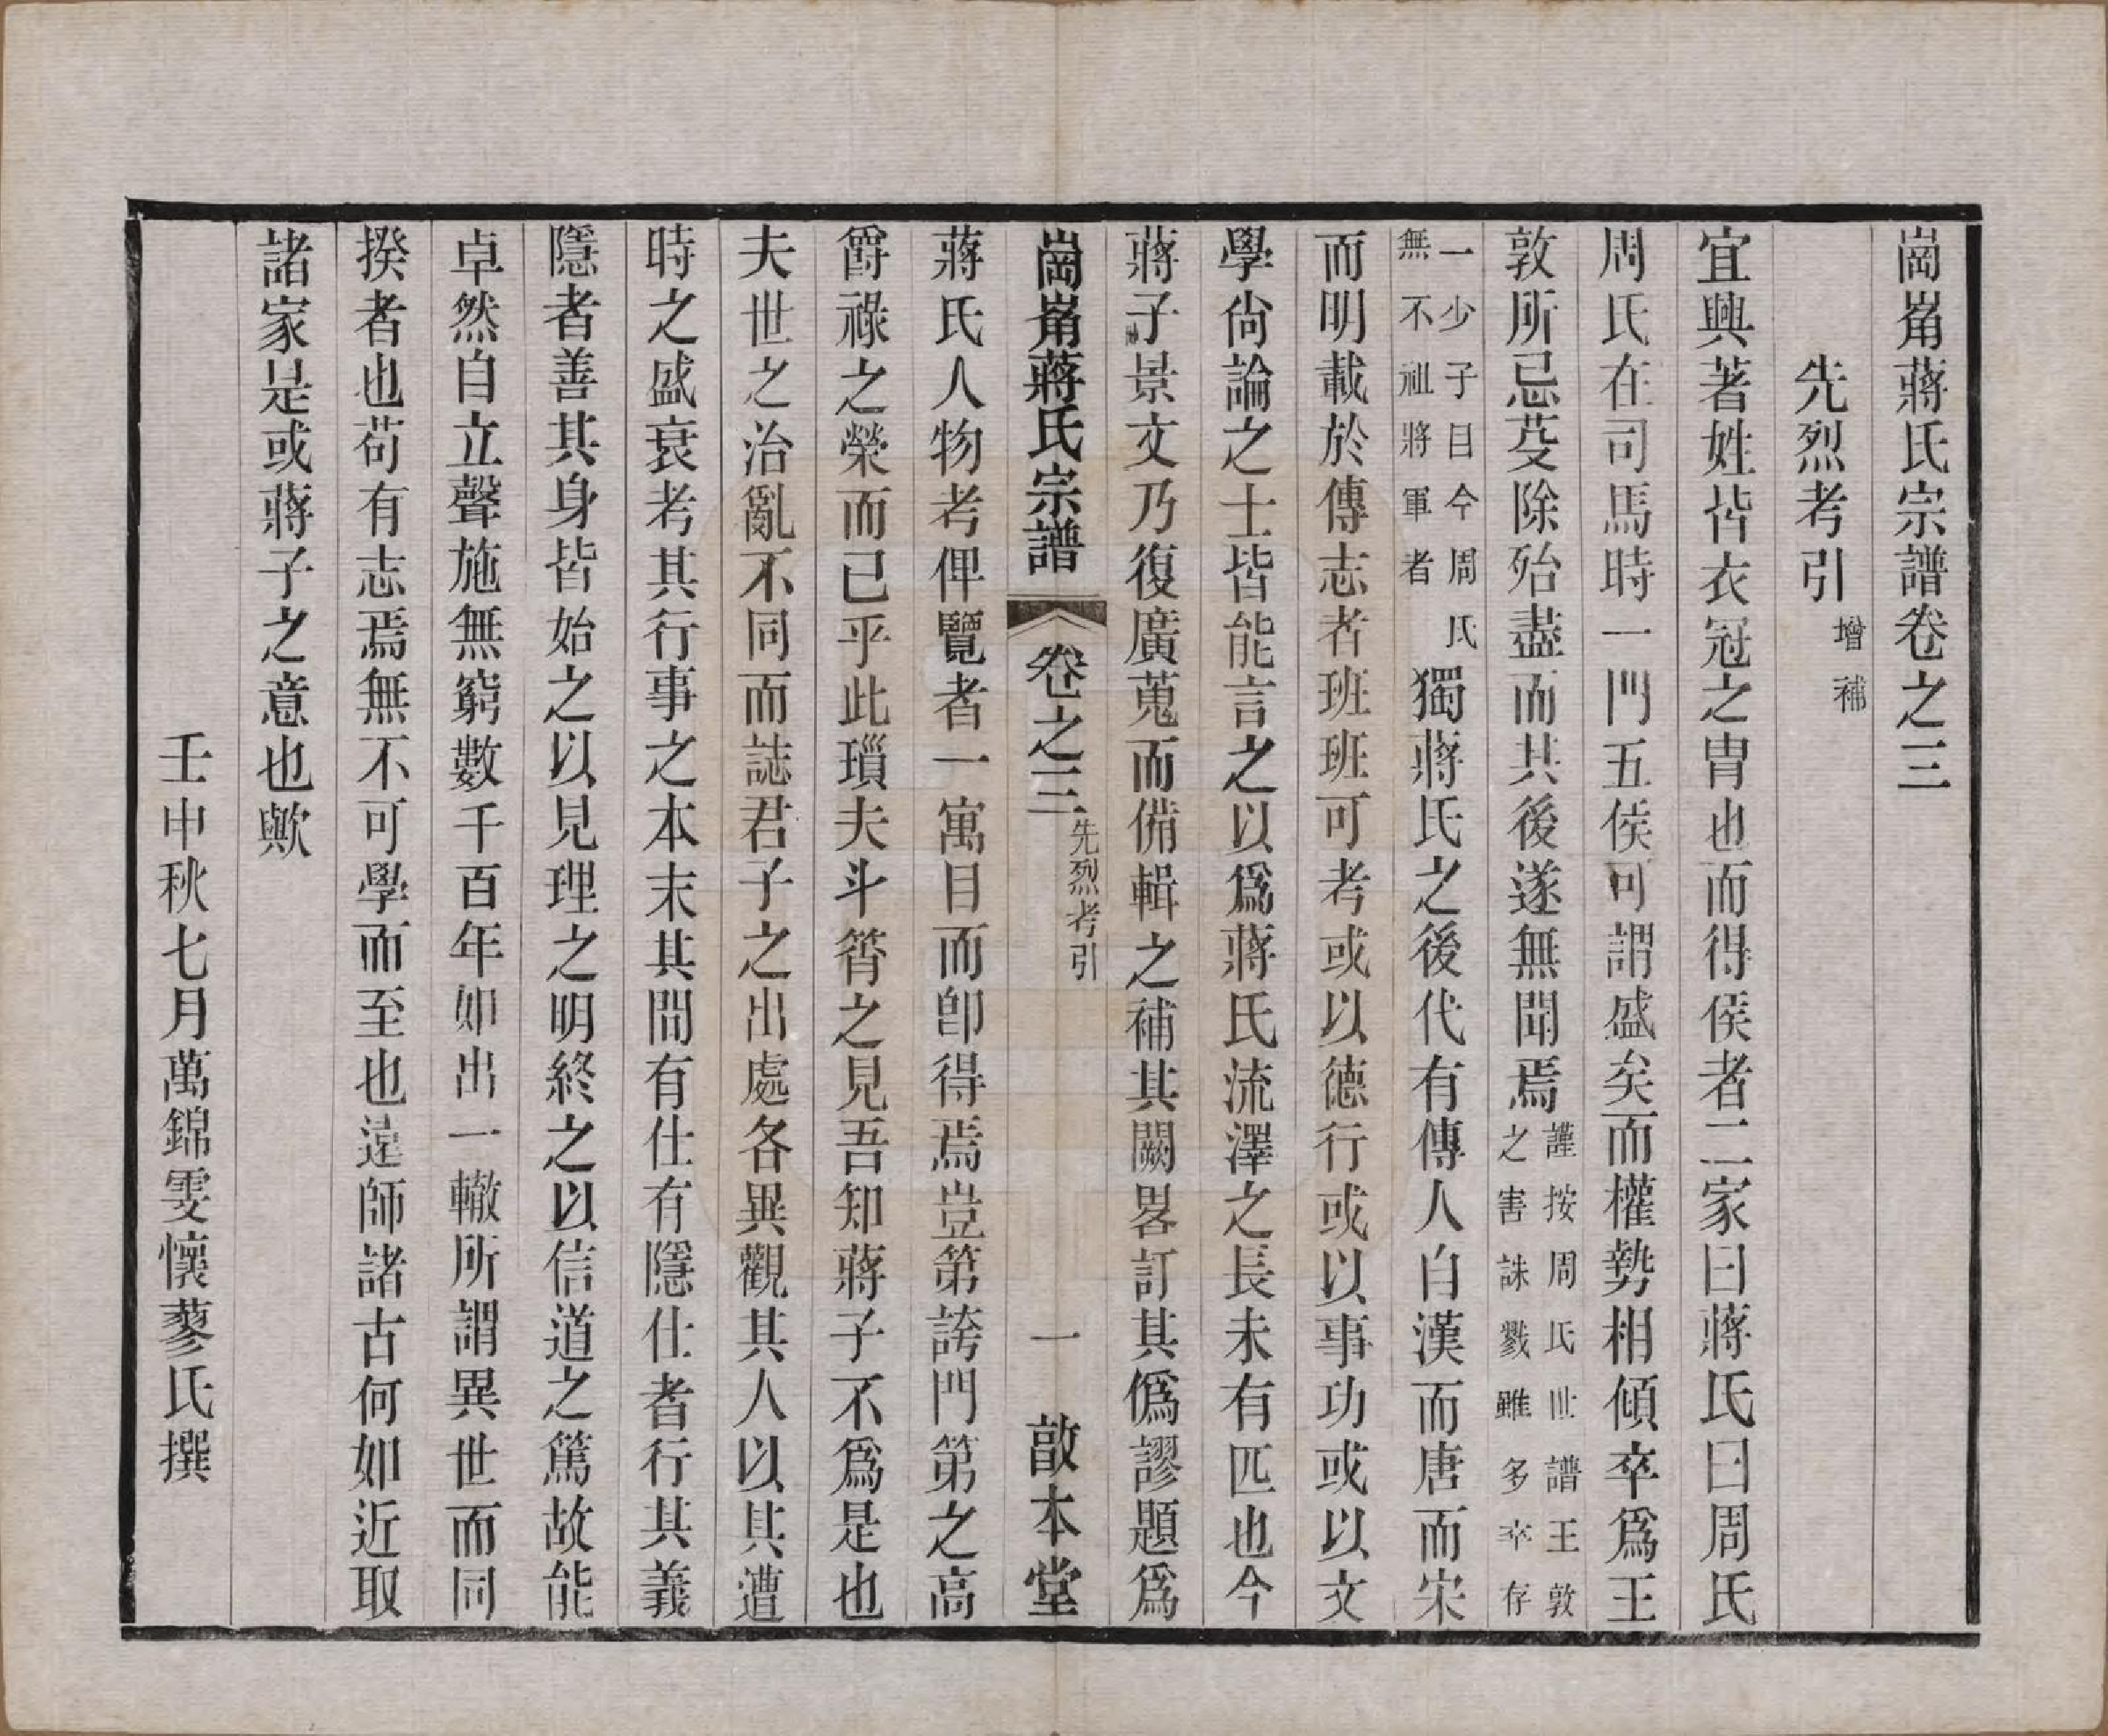 崗角蔣氏宗譜卷之三
先烈考引增補
宜興著姓皆衣冠之胄也而得侯者二家曰蔣氏曰周氏
周氏在司馬時一門五侯可謂盛矣而權勢相傾卒爲王
敦所忌芟除殆盡而其後遂無聞焉謹按周氏世譜王敦之害誅戮雖多卒存
一少子目今周氏無不祖將軍者獨蔣氏之後代有傳人自漢而唐而宋
而明載於傳志者班班可考或以德行或以事功或以文
學尚論之士皆能言之以爲蔣氏流澤之長未有匹也今
蔣子景文乃復廣蒐而備輯之補其闕畧訂其僞謬題爲
崗角蔣氏宗譜 卷之三 先烈考引 一 敔本堂
蔣氏人物考俾覽者一寓目而卽得焉豈第誇門第之高
爵祿之榮而已乎此瑣夫斗筲之見吾知蔣子不爲是也
夫世之治亂不同而誌君子之出處各異觀其人以其遭
時之盛衰考其行事之本末其間有仕有隱仕者行其義
隱者善其身皆始之以見理之明終之以信道之篤故能
卓然自立聲施無窮數千百年如出一轍所謂異世而同
揆者也苟有志焉無不可學而至也遠師諸古何如近取
諸家是或蔣子之意也歟
壬申秋七月萬錦雯懷蓼氏撰